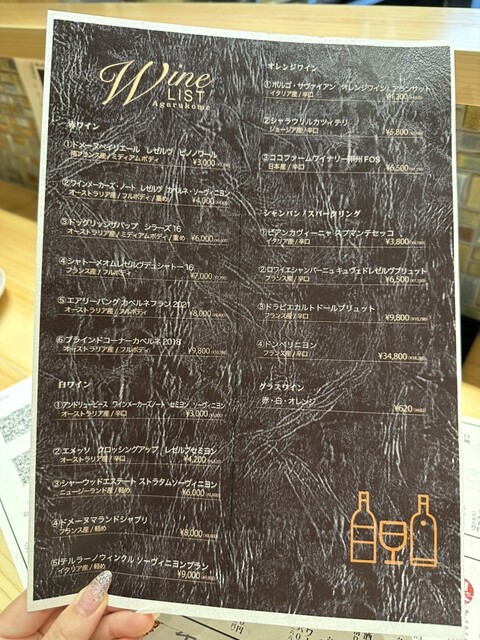 Wine
LIST
Agarukome
赤ワイン
①ドメーヌベイリエール レゼルヴ ピノノワール
南フランス産 / ミディアムボディ
¥3,000
②ワインメーカーズ・ノート レゼルヴ カベルネ・ソーヴィニヨン
オーストラリア産 / フルボディ / 重め
¥4,000
③ドッグリッジザパップ シラーズ16
オーストラリア産 / ミディアムボディ / 重め
¥6,000
④シャトーメオムレゼルヴデュシャトー16
フランス産 / フルボディ
¥7,000
⑤エアリーバンク カベルネフラン 2021
オーストラリア産 / フルボディ
¥8,000
⑥ブラインドコーナーカベルネ 2018
オーストラリア産 / フルボディ
¥9,800
白ワイン
①アンドリューピース ワインメーカーズノート セミヨン ソーヴィニヨン
オーストラリア産 / 辛口
¥3,000
②エメッソ クロッシングアップ レゼルブセミヨン
オーストラリア産 / 辛口
¥4,200
③シャーウッドエステート ストラタムソーヴィニヨン
ニュージーランド産 / 軽め
¥6,000
④ドメーヌマランドシャブリ
フランス産 / 軽め
¥8,000
⑤テルラーノヴィンクル ソーヴィニヨンブラン
イタリア産 / 軽め
¥9,000
オレンジワイン
①ボルゴ・サヴァイアン オレンジワイン アランサット
イタリア産 / 辛口
¥4,200
②シャラウリルカツィテリ
ジョージア産 / 辛口
¥5,800
③ココファームワイナリー甲州 FOS
日本産 / 辛口
¥6,500
シャンパン / スパークリング
①ビアンカヴィーニャ スプマンテセッコ
イタリア産 / 辛口
¥3,800
②ロワイエシャンパーニュ キュヴェドレゼルヴブリュット
フランス産 / 辛口
¥6,500
③ドラピエカルトドールブリュット
フランス産 / 辛口
¥9,800
④ドンペリニヨン
フランス産 / 辛口
¥34,800
グラスワイン
赤・白・オレンジ
¥620